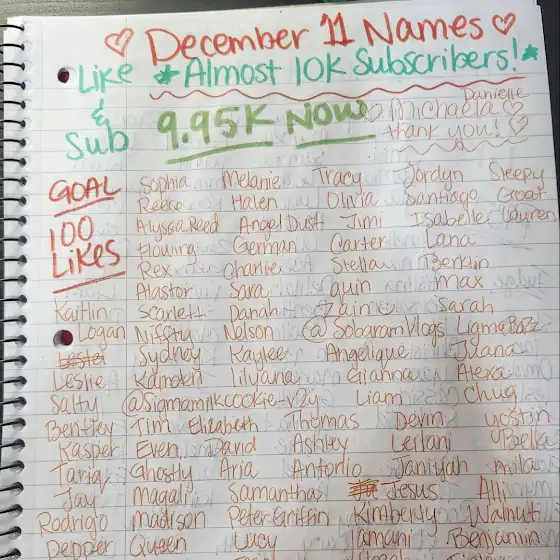 ♡ December 11 Names ♡
Like * Almost 10K Subscribers! *
& Danielle
Sub 9.95K NOW ♡ Michaela ♡
thank you! ♡
GOAL Sophia Melanie Tracy Jordyn Sleepy
Reece Halen Olivia Santiago Groat
100 Alyssa Reed Angel Dust Jimi Isabelle Lauren
Likes Flowing German Carter Lana
Rex Charlie Stella Berklin
Alastor Sara Quin Max
Kaitlin Scarlett Danah Zain Sarah
Logan Niffty Nelson @SobaramVlogs LigmaBazz
Sydney Kaylee Angelique Juana
Leslie Kamden Lilyana Gianna Alexa
Salty Liam Chug
Bentley Tim Elizabeth Thomas Devin Yostin
Kasper Even David Ashley Leilani
Taria Ghostly Aria Antonio Janiyah
Jay Magali Samantha Jesus Alli
Rodrigo Madison Peter Griffin Kimberly Walnut
Depper Queen Lucy Amani Benjamin